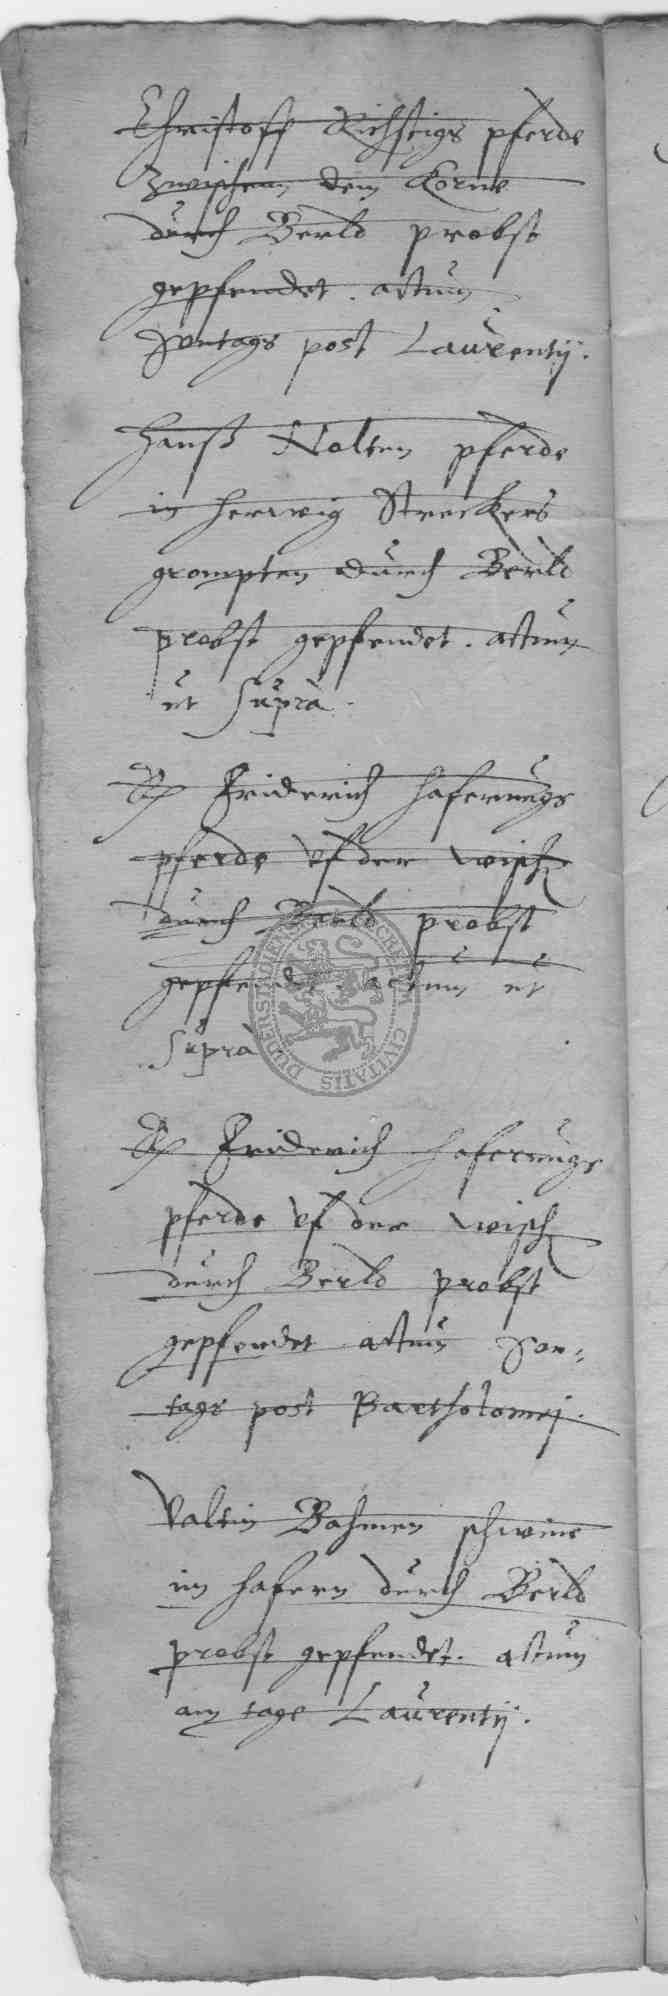 Christoff Richtigs pferde
zwischenn dem Korne
durch Berld probst
gepfendet . actum
Sontags post Laurentij .
Hanß Nolten pferde
in Herwig Streckers
grompten durch Berld
probst gepfendet . actum
ut suprà .
Friderich Hafernngs
pferde uf der wisch
durch Berld probst
gepfendet . actum ut
suprà
Friderich Hafernngs
pferde uf der wisch
durch Berld probst
gepfendet actum Son=
tags post Bartholomej .
Valtin Bahmen schweine
im hafern durch Berld
probst gepfendet . actum
am tage Laurentij .